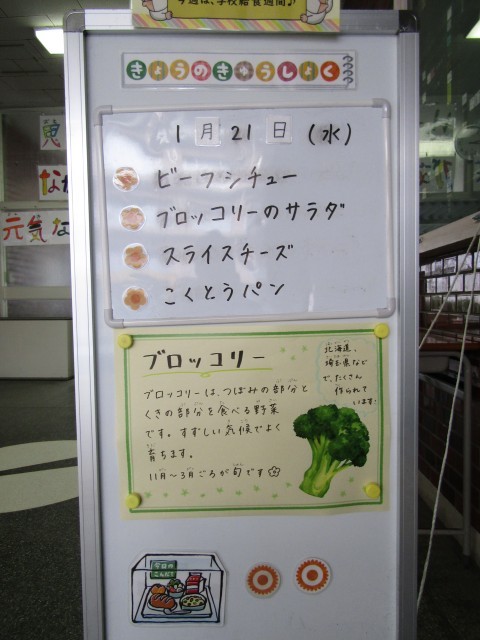 今週は、学校給食週間♪
きょうのきゅうしょく
1月21日(水)
ビーフシチュー
ブロッコリーのサラダ
スライスチーズ
こくとうパン
ブロッコリー
北海道、
埼玉県など
で、たくさん
作られて
います。
ブロッコリーは、つぼみの部分と
くきの部分を食べる野菜
です。すずしい気候でよく
育ちます。
11月~3月ごろが旬です
今日の
こんだて
元気な